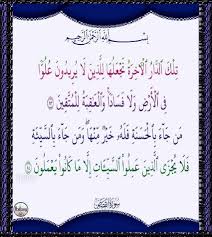 بِسْمِ اللَّهِ الرَّحْمَٰنِ الرَّحِيمِ
تِلْكَ الدَّارُ الْآخِرَةُ نَجْعَلُهَا لِلَّذِينَ لَا يُرِيدُونَ عُلُوًّا
فِي الْأَرْضِ وَلَا فَسَادًا وَالْعَاقِبَةُ لِلْمُتَّقِينَ
مَن جَاءَ بِالْحَسَنَةِ فَلَهُ خَيْرٌ مِّنْهَا وَمَن جَاءَ بِالسَّيِّئَةِ
فَلَا يُجْزَى الَّذِينَ عَمِلُوا السَّيِّئَاتِ إِلَّا مَا كَانُوا يَعْمَلُونَ
سورة القصص